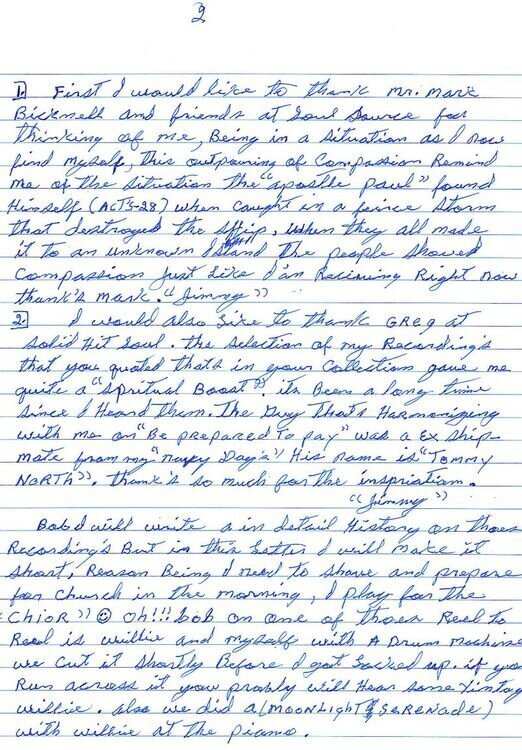 2
1. First I would like to thank Mr. Mark
Bicknell and friends at Soul Source for
thinking of me, Being in a situation as I now
find myself, this outpouring of Compassion Remind
me of the situation the "apostle paul" found
Himself (ACTS-28) when caught in a feirce storm
that destroyed the ship, when they all made
it to an unknown Island The people showed
Compassion Just Like I'am Recieving Right now
thank's mark. "Jimmy"
2. I would also Like to thank GREG at
solid Hit Soul. the selection of my Recording's
that you quoted thats in your Collection gave me
quite a "Spritual Boost". its Been a long time
since I Heard them. The Guy thats Harmonizing
with me on "Be prepared To pay" was a Ex ship-
mate from my "navy Day's" His name is "Tommy
NORTH". thank's so much for the inspriatiam.
"Jimmy"
Bob I will write a in detail History on thoes
Recording's But in this Letter I will make it
short, Reason Being I need to shave and prepare
for Church in the morning, I play for the
"CHIOR" ☺ Oh!!! bob on one of thoes Reel To
Reel is willie and myself with A Drum machine
we Cut it Shortly Before I got Locked up. if you
Run across it you probly will Hear some Vintag
willie. also we did a (MOONLIGHT SERENADE)
with willie at the piano.